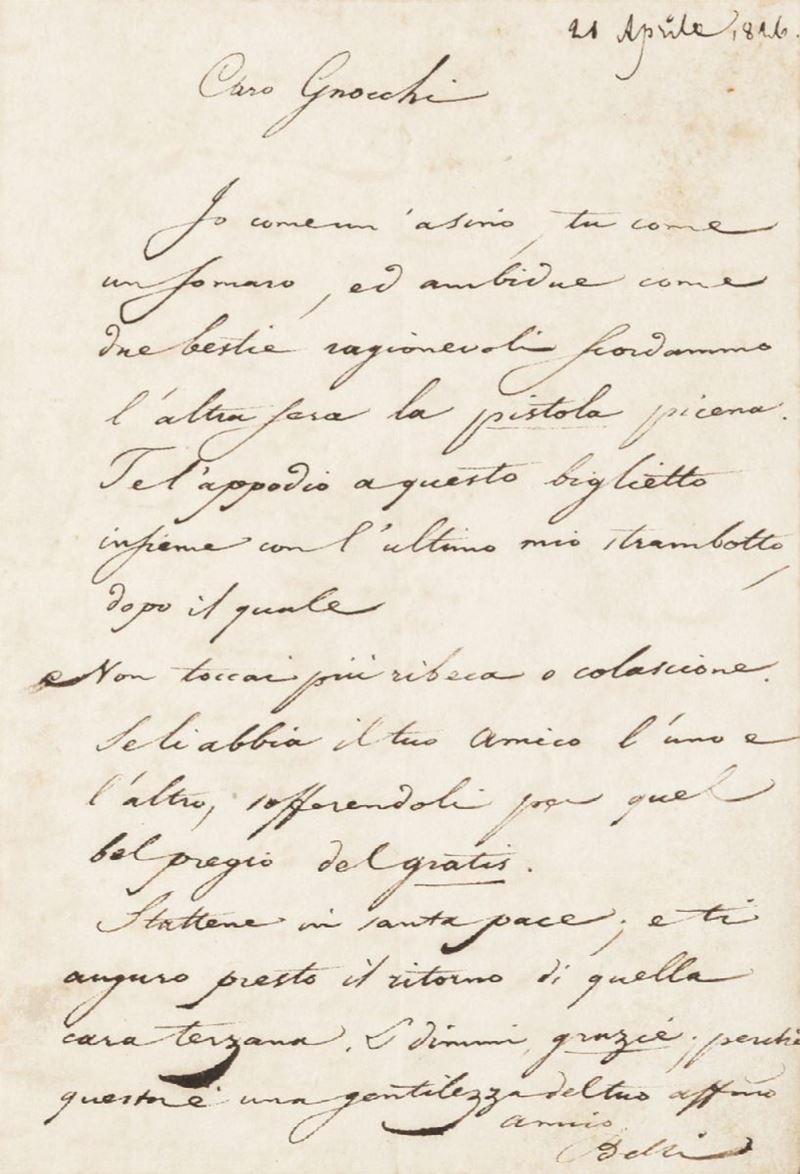 21 Aprile 1826.
Caro Gnocchi
Io come un' asino, tu come
un somaro, ed ambidue come
due bestie ragionevoli scordammo
l'altra sera la pistola picena.
Te l'appodio a questo biglietto
insieme con l'ultimo mio strambotto,
dopo il quale
Non toccai più ribeca o colascione.
Se li abbia il tuo Amico l'uno e
l'altro, sofferendoli per quel
bel pregio del gratis.
Stattene in santa pace; e ti
auguro presto il ritorno di quella
cara terzana. E dimmi grazie; perchè
questa è una gentilezza del tuo affmo
amico
Belli